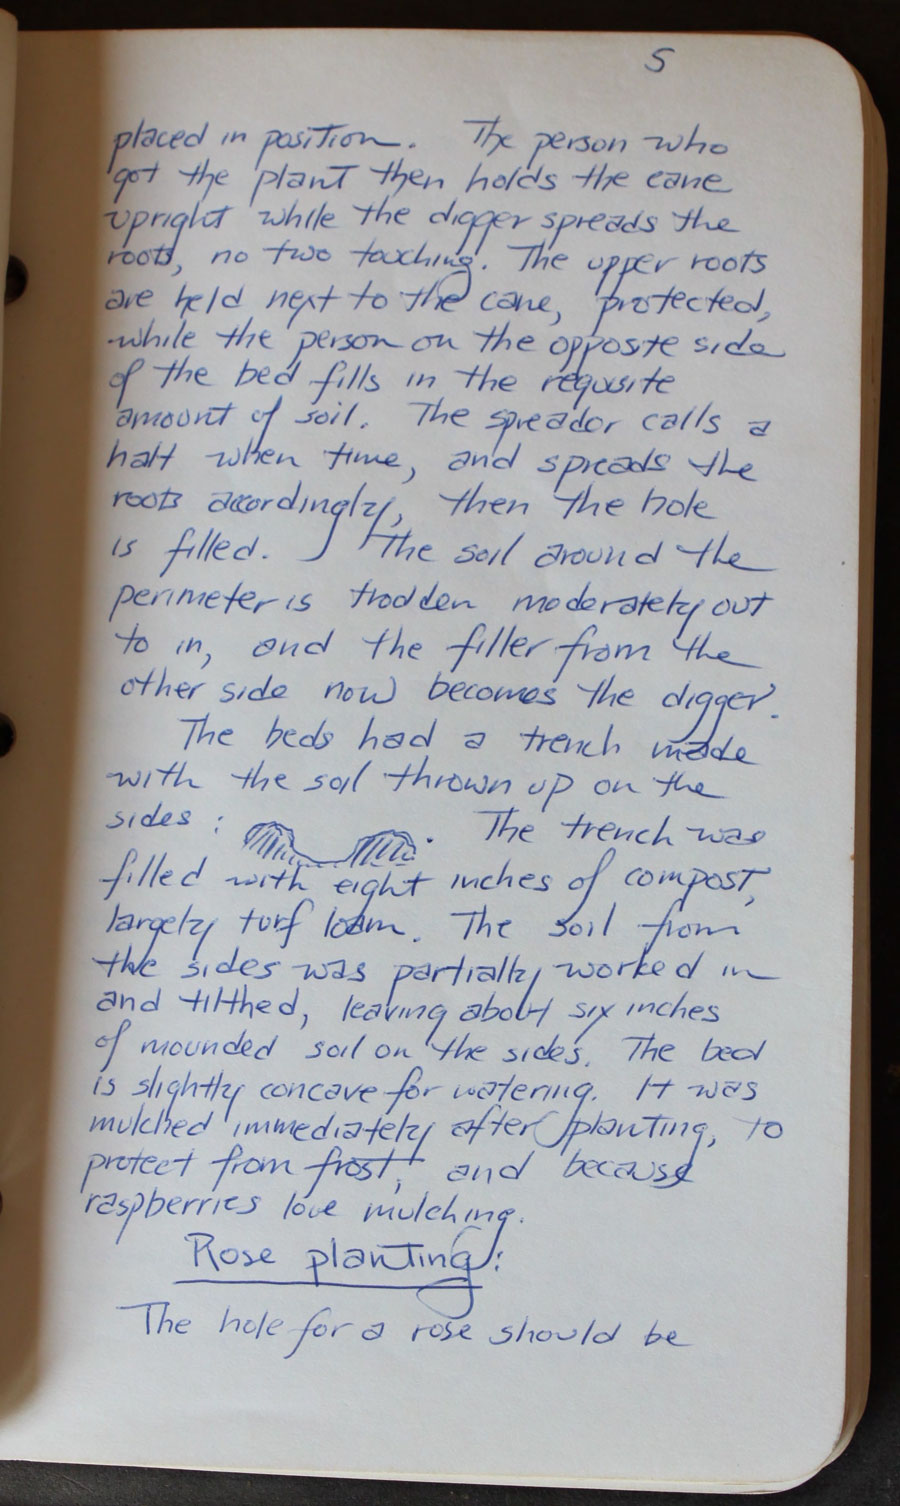 5
placed in position. The person who
got the plant then holds the cane
upright while the digger spreads the
roots, no two touching. The upper roots
are held next to the cane, protected,
while the person on the opposite side
of the bed fills in the requisite
amount of soil. The spreador calls a
halt when time, and spreads the
roots accordingly, then the hole
is filled. The soil around the
perimeter is trodden moderately out
to in, and the filler from the
other side now becomes the digger.
The beds had a trench made
with the soil thrown up on the
sides: . The trench was
filled with eight inches of compost,
largely turf loam. The soil from
the sides was partially worked in
and tilthed, leaving about six inches
of mounded soil on the sides. The bed
is slightly concave for watering. It was
mulched immediately after planting, to
protect from frost, and because
raspberries love mulching.
Rose planting:
The hole for a rose should be